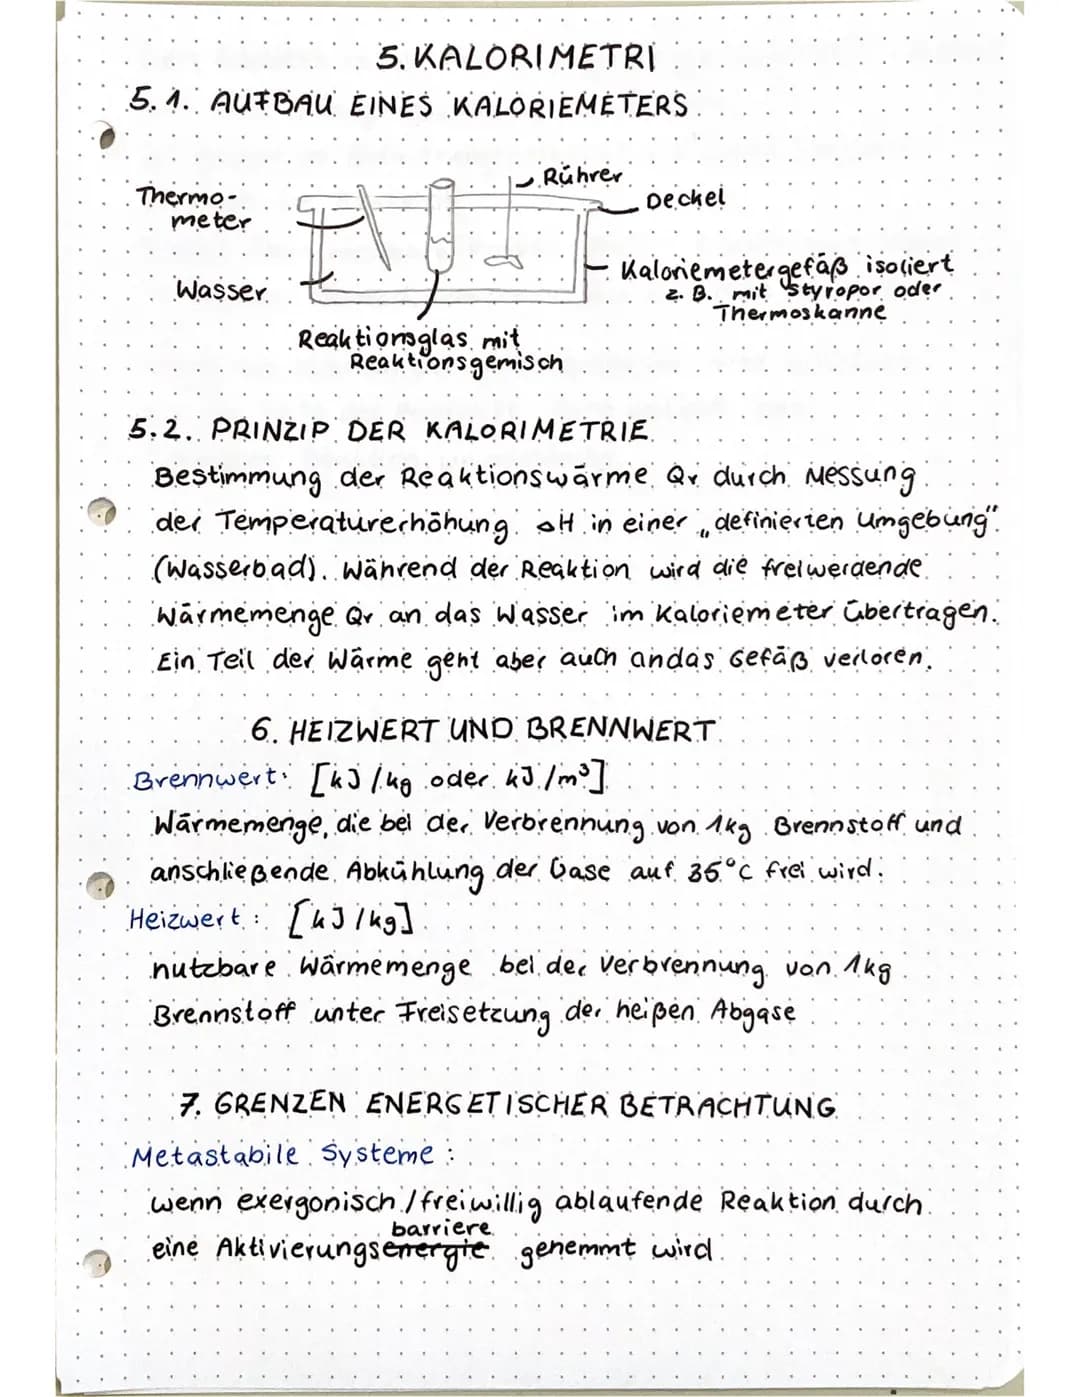 5. KALORIMETRI
5.1. AUFBAU EINES KALORIEMETERS
Rührer
Thermo-
meter
Deckel
Kaloriemetergefäß isoliert
z. B. mit Styropor oder
Thermoskanne
Wasser
Reaktionsglas mit
Reaktionsgemisch
5.2. PRINZIP DER KALORIMETRIE
Bestimmung der Reaktionswärme Qr durch Messung
der Temperaturerhöhung ΔH in einer „definierten Umgebung"
(Wasserbad). Während der Reaktion wird die freiwerdende
Wärmemenge Qr an das Wasser im Kaloriemeter übertragen.
Ein Teil der Wärme geht aber auch an das Gefäß verloren.
6. HEIZWERT UND BRENNWERT
Brennwert: [kJ/kg oder kJ/m³]
Wärmemenge, die bei der Verbrennung von 1kg Brennstoff und
anschließende Abkühlung der Gase auf 35°C frei wird.
Heizwert: [kJ/kg]
nutzbare Wärmemenge bei der Verbrennung von 1kg
Brennstoff unter Freisetzung der heißen Abgase
7. GRENZEN ENERGETISCHER BETRACHTUNG
Metastabile Systeme:
wenn exergonisch/freiwillig ablaufende Reaktion durch
barriere
eine Aktivierungsenergie gehemmt wird